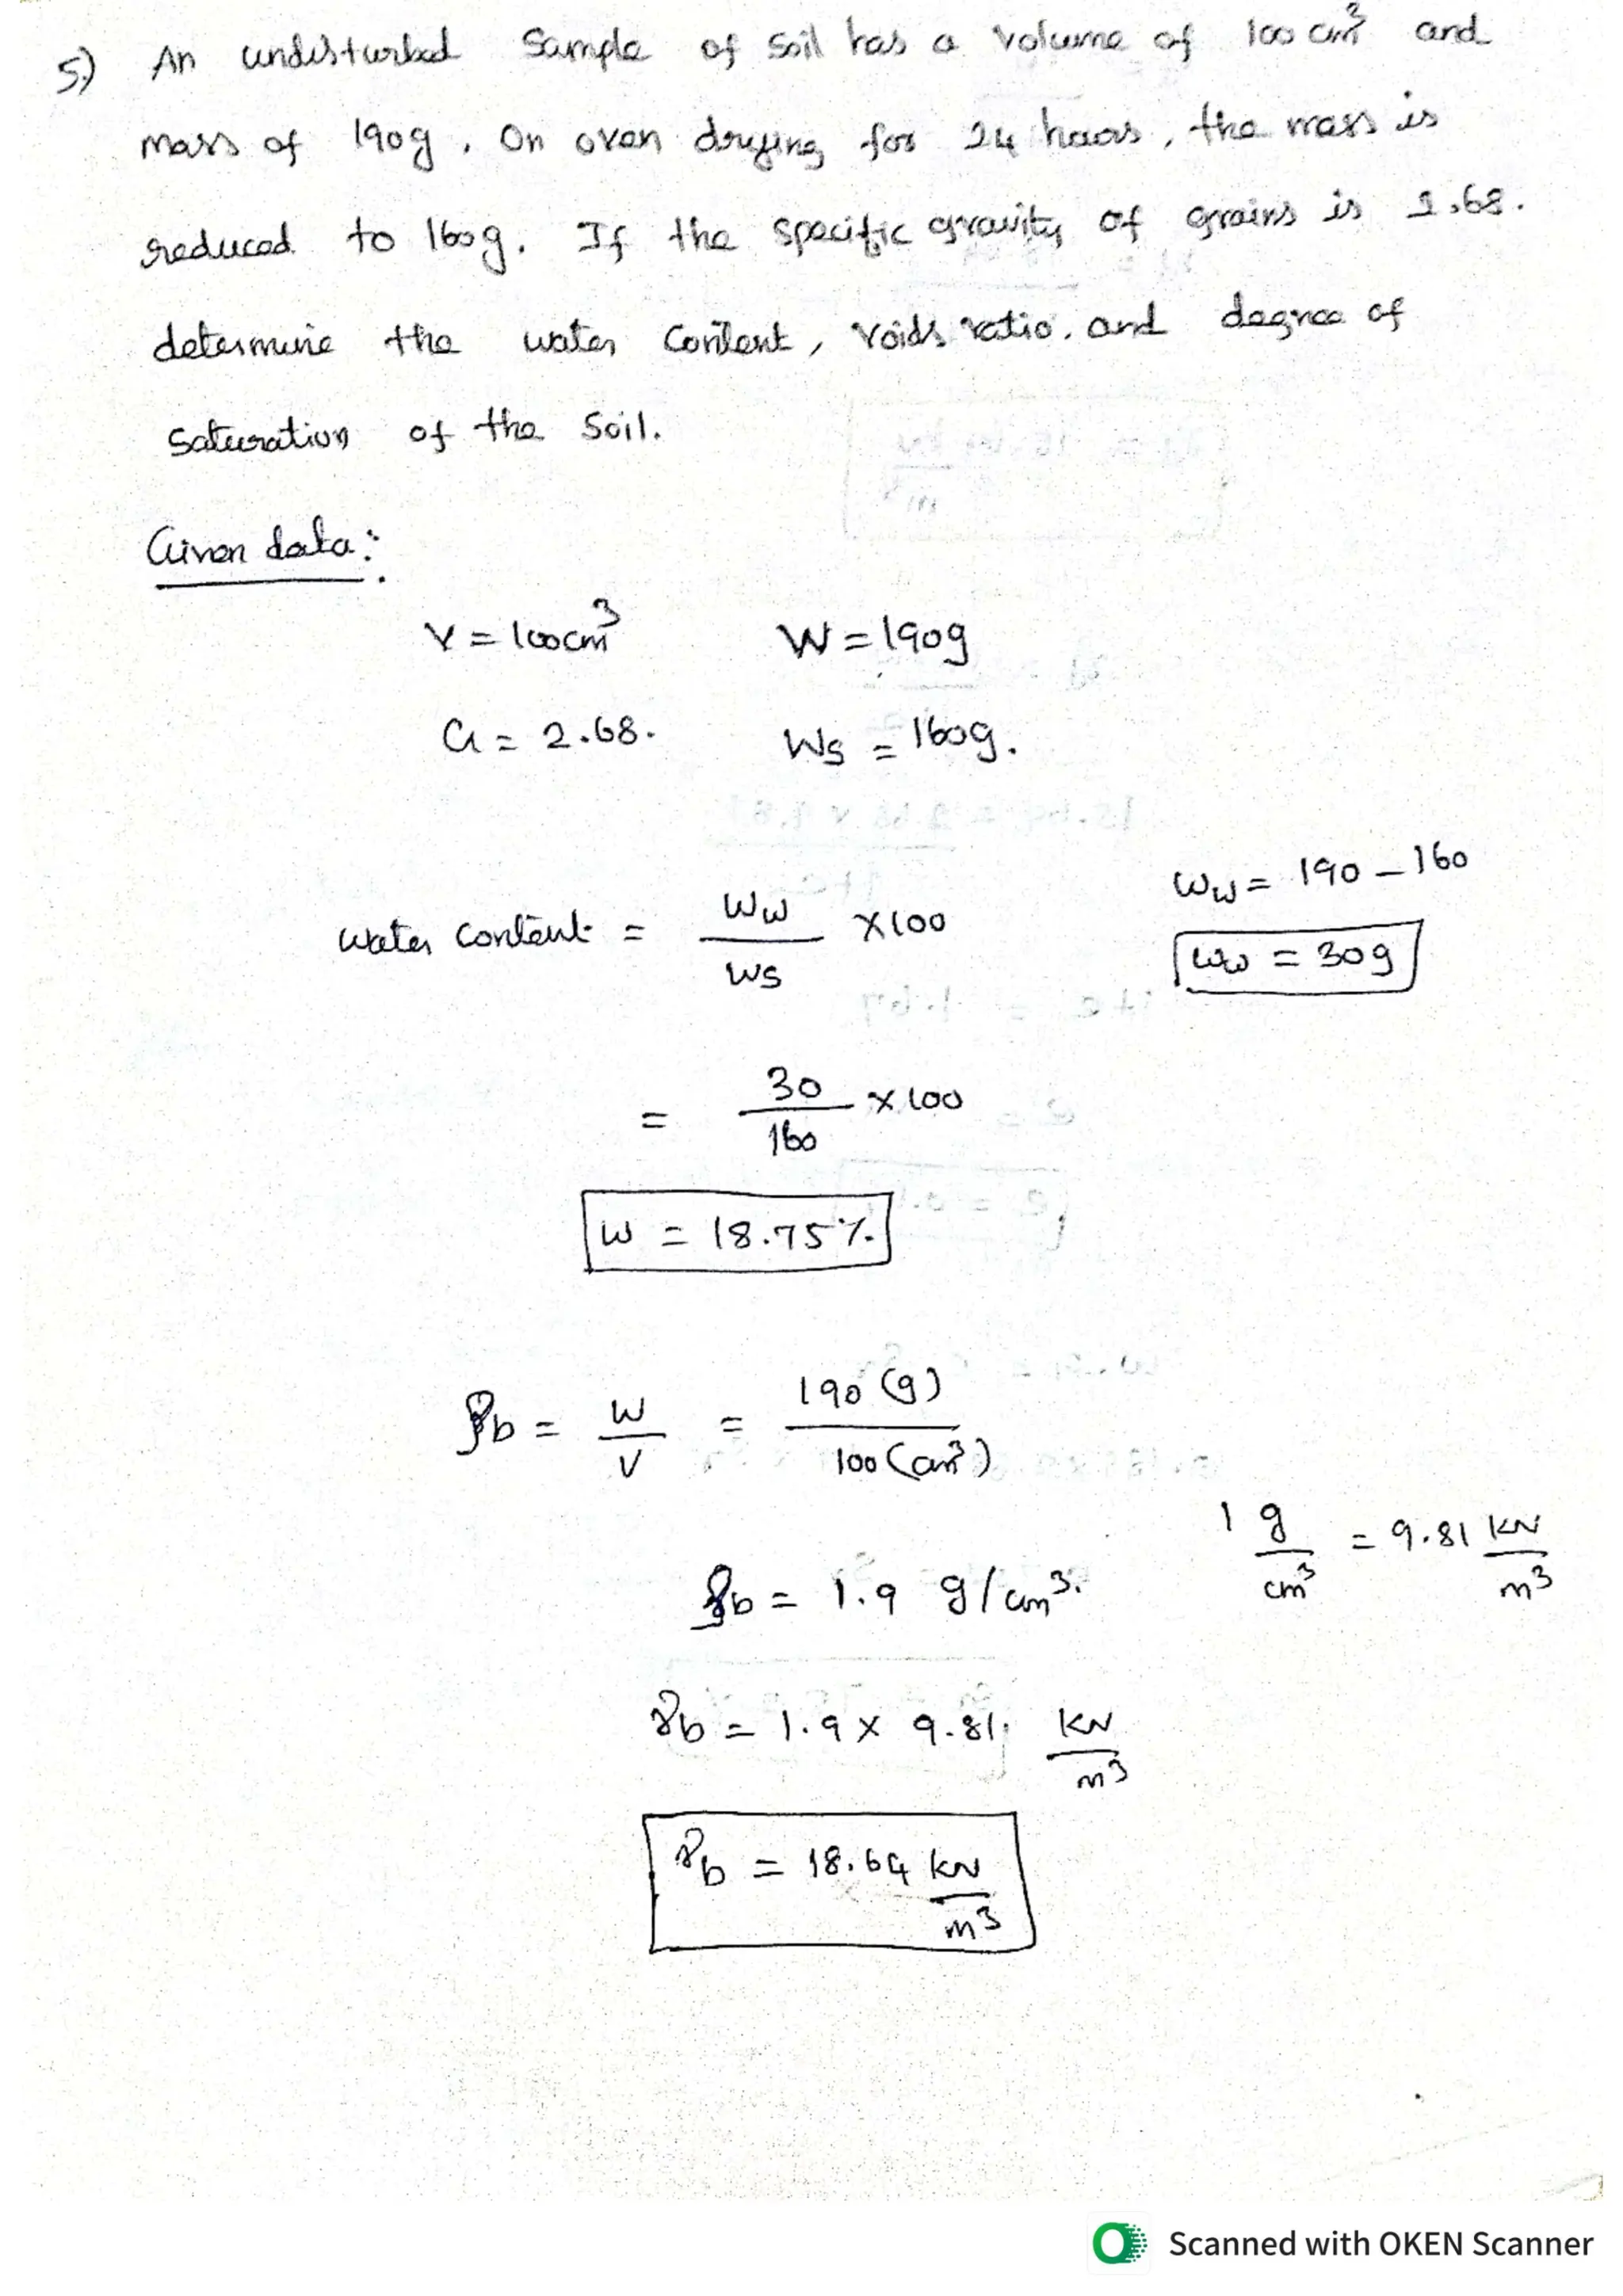 5.) An undisturbed Sample of Soil has a Volume of 100 cm³ and
mass of 190g. On oven drying for 24 hours, the mass is
reduced to 160g. If the specific gravity of grains is 2.68.
determine the water Content, Voids ratio. and degree of
Saturation of the Soil.
Given data:
V = 100cm³ W = 190g
G = 2.68. Ws = 160g.
Ww = 190 - 160
water Content = Ww/Ws × 100
Ww = 30g
= 30/160 × 100
W = 18.75%
ρb = W/V = 190 (g)/100 (cm³)
1 g/cm³ = 9.81 KN/m³
ρb = 1.9 g/cm³.
γb = 1.9 × 9.81 KN/m³
γb = 18.64 KN/m³
Scanned with OKEN Scanner